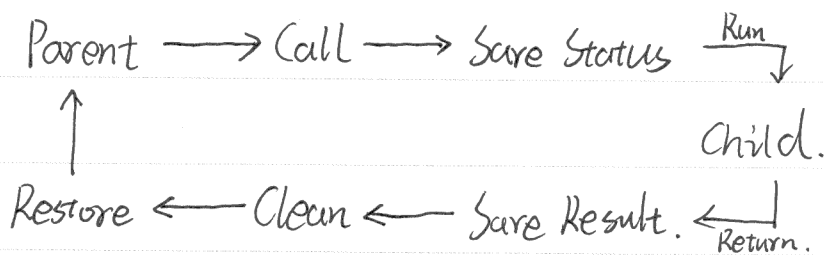 Parent → Call → Save Status Run
Child.
Restore ← Clean ← Save Result. Return.